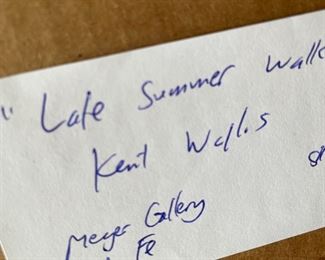 " Late Summer Walk
Kent Wallis
Meyer Gallery
Fe